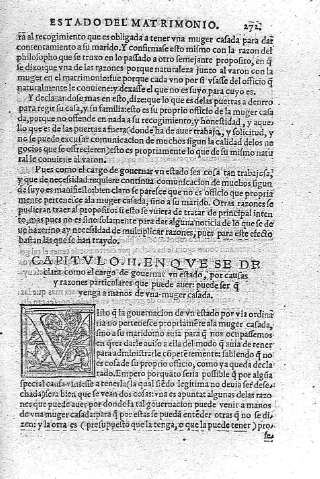 ESTADO DEL MATRIMONIO. 272
rá al recogimiento que es obligada a tener vna muger casada para dar
contentamiento a su marido. Y confirmase esto mismo con la razon del
philosopho que se truxo en lo passado a otro semejante proposito, en q̃
se dize: que vna de las razones porque naturaleza junto al varon con la
muger en el matrimonio: fue porque cada vno por si vsasse del officio q̃
naturalmente le conuiene y dexasse el que no es suyo para cuyo es.
Y declarandose mas en esto, dize: que lo que es de las puertas a dentro
para regir su casa, y su familia: esto es su proprio officio de la muger casa
da, porque no offende en nada a su recogimiento, y honestidad, y aque
llo que es de las puertas a fuera (donde ha de auer trabajo, y solicitud, y
no se puede excusar comunicacion de muchos segun la calidad de los ne
gocios que se offrecieren) esto es propriamente lo que de su mismo natu
ral le conuiene al varon.
Pues como el cargo de gouernar vn estado sea cosa tan trabajosa,
y que de necessidad requiere continua comunicacion de muchos segun
da suyo es manifiesto: bien claro se parece que no es officio que propria
mente pertenesce a la muger casada, sino a su marido. Otras razones se
pudieran traer al proposito: si esto se viera de tratar de principal inten
to, mas pues no es sino solamente dar alguna noticia de lo que se de
ue hazer: no ay necessidad de multiplicar razones, pues para este effecto
bastan las que se han traydo.
CAPITVLO. II. EN QVE SE DE
clara como el cargo de gouernar vn estado, por causas
y razones particulares que puede auer: puede ser q̃
venga a manos de vna muger casada.
Visto q̃ la gouernacion de vn estado por via ordina
ria no pertenesce propriamẽte a la muger casada,
sino a su marido: no está para q̃ nos ocupassemos
en q̃rer darle auiso a ella del modo q̃ auia de tener
para administrarle cõpetentemente: sabiendo q̃ no
es cosa de su proprio officio, como ya queda decla
rado. Empero porque seria possible q̃ por algũa
special causa viniesse a tenerla (la qual siẽdo legitima no deuia ser dese
chada) sera bien que se vean dos cosas: vna es apuntar algunas de las razo
nes que puede auer, por donde la tal gouernacion puede venir a manos
de vna muger casada: para q̃ por estas se pueda entẽder otras q̃ no se di
zen: y la otra es (presupuesto que la tenga, o que la puede tener) pro-
se,